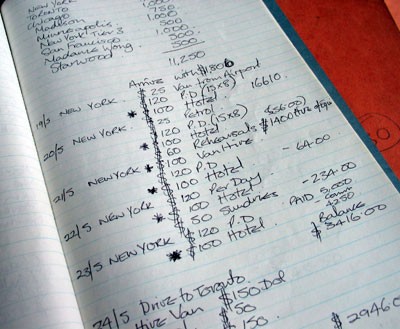 NEW YORK 1,000
TORONTO 750
Chicago 1,000
Madison
Minneapolis 500
New York Tier 3 1,000
San Francisco 500
Madame Wong 500
Starwood
11,250
Arrive with $1800
19/5 NEW YORK $25 Van from Airport
$120 P.D. (15x8)
$100 Hotel 16610
20/5 NEW YORK * $25 Petrol
$120 P.D. (15x8)
$100 Hotel
$60 Rehearsals $1400
21/5 NEW YORK * $100 Van Hire
$120 P.D.
$100 Hotel - 64.00
22/5 NEW YORK * $120 Per Day
$100 Hotel
$50 Sundries - 234.00
23/5 NEW YORK * $120 P.D PAID 5,000
$100 Hotel
Balance
$ 3416.00
24/5 Drive to Toronto
Hire Van $150
$50
$150
$29460